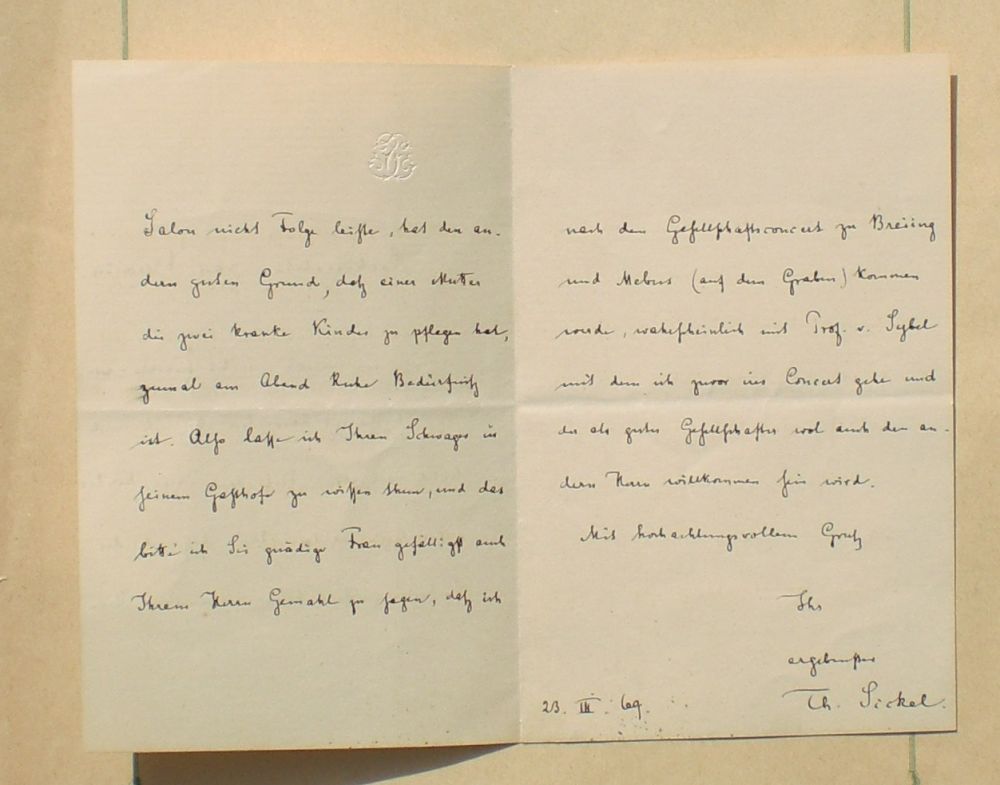 Salon nicht Folge leiste, hat den an-
dern guten Grund, daß einer Mutter
die zwei kranke Kinder zu pflegen hat,
zumal am Abend Ruhe Bedürfniß
ist. Also lasse ich Ihren Schwager in
seinem Gasthofe zu wissen thun, und das
bitte ich Sie gnädige Frau gefälligst auch
Ihrem Herrn Gemahl zu sagen, daß ich
nach dem Gesellschaftsconcert zu Breiing
und Mebus (auf dem Graben) kommen
werde, wahrscheinlich mit Prof. v. Sybel
mit dem ich zuvor ins Concert gehe und
der als guter Gesellschafter wol auch den an-
dern Herrn willkommen sein wird.
Mit hochachtungsvollem Gruß
Ihr
ergebenster
Th. Sickel.
23. III. 69.